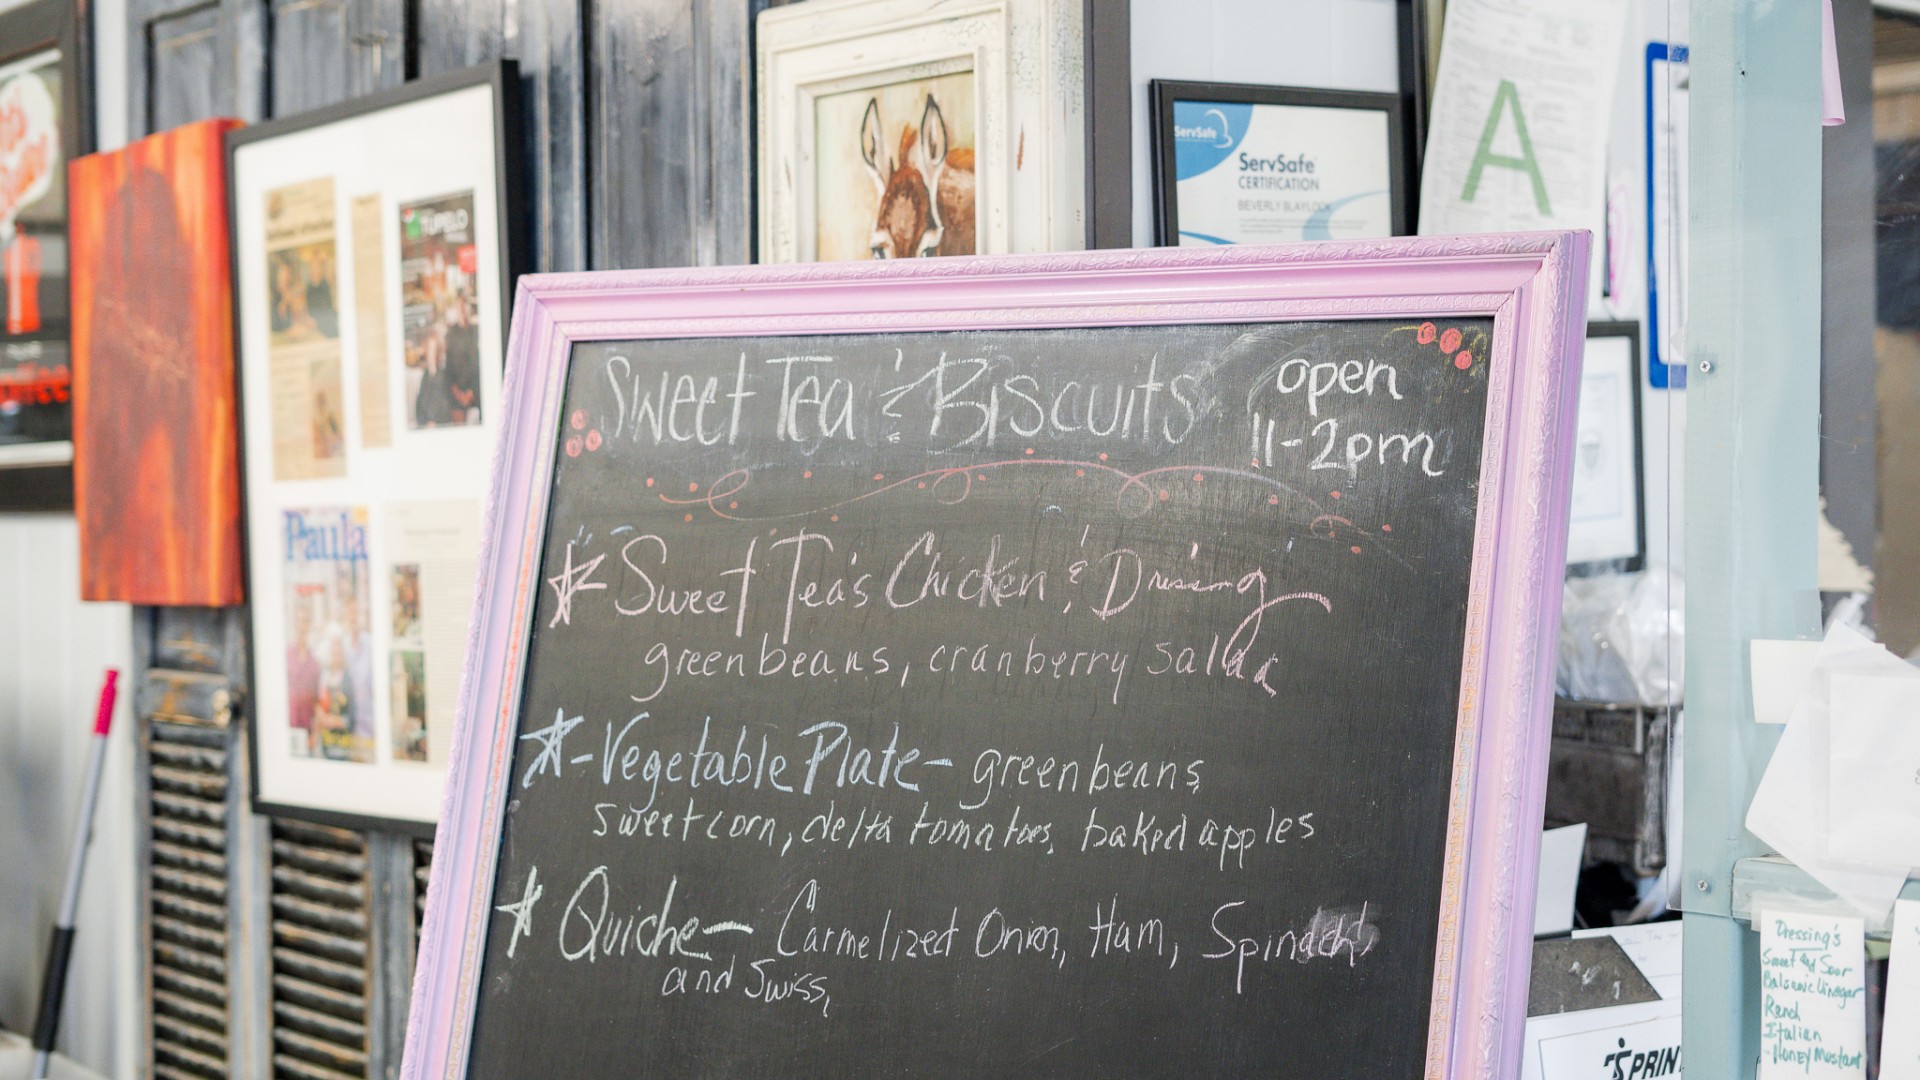 Sweet Tea & Biscuits
open
11-2pm
Sweet Tea's Chicken & Dressing
greenbeans, cranberry salad
-Vegetable Plate- greenbeans
sweet corn, delta tomatoes, baked apples
Quiche- Carmelized Onion, Ham, Spinach,
and Swiss,
ServSafe
ServSafe
CERTIFICATION
BEVERLY BLAYLOCK
A
TUPELO
Paula
Dressing's
Sweet and Sour
Balsamic Vinegar
Ranch
Italian
-Honey Mustard
SPRIN